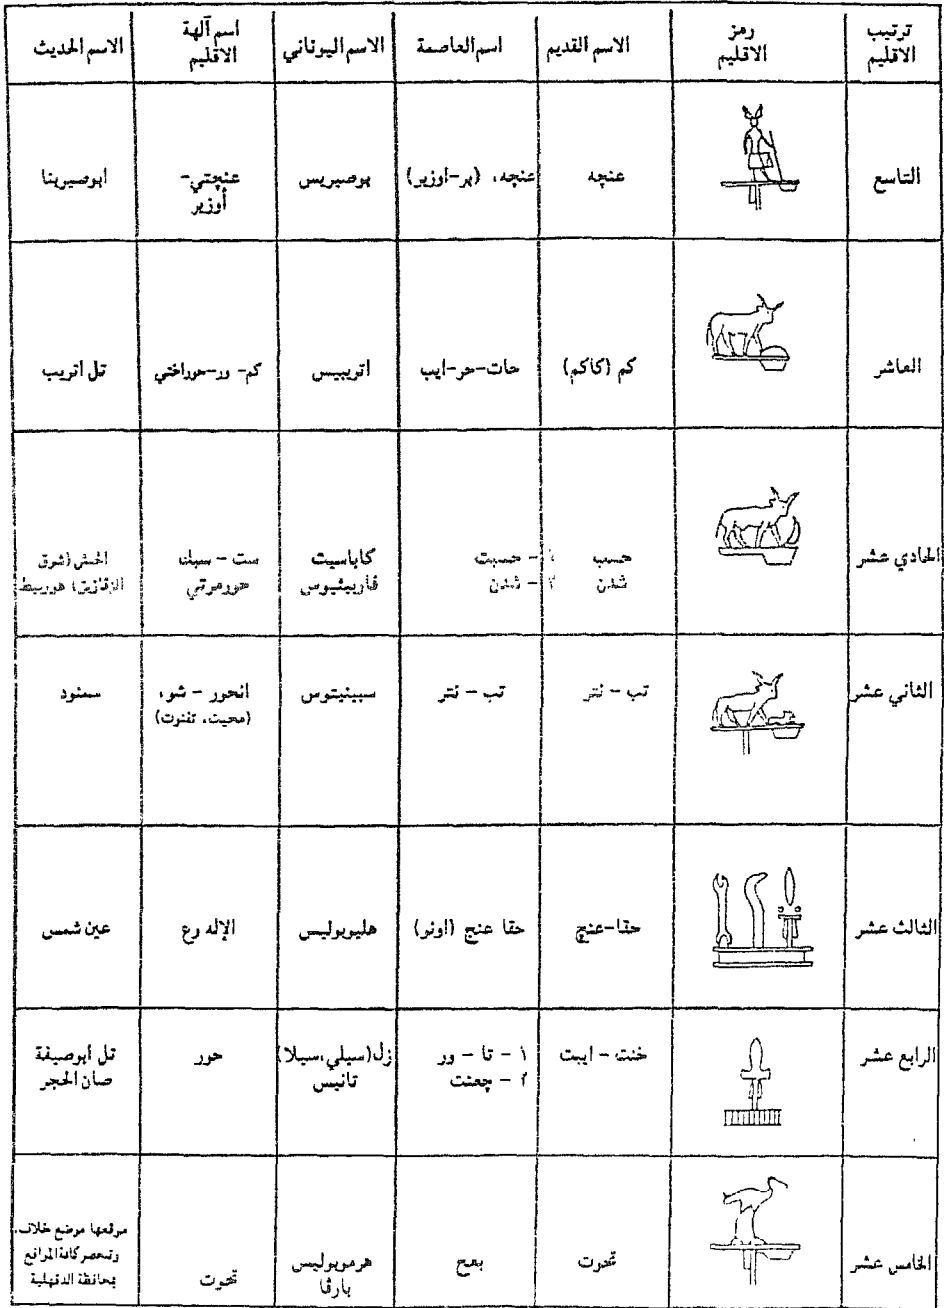 ترتيب الاقليم | رمز الاقليم | الاسم القديم | اسم العاصمة | الاسم اليوناني | اسم آلهة الاقليم | الاسم الحديث
التاسع | عنچه | عنچه، (پر-اوزير) | بوصيريس | عنچتي- أوزير | ابوصيربنا
العاشر | كم (كاكم) | حات-حر-ايب | اتريبيس | كم- ور-حوراختي | تل اتريب
الحادي عشر | حسب | ١ - حسبت | كاباسيت | ست - سبك | (شرق
شدن | ٢ - شدن | فاربيثيوس | حورمرتي | الزقازيق) هوربيط
الثاني عشر | تب - نتر | تب - نتر | سبينيتوس | انحور - شو، | سمنود
(محيت، تفنوت)
الثالث عشر | حقا-عنچ | حقا عنج (اونو) | هليوبوليس | الإله رع | عين شمس
الرابع عشر | خنت - ايبت | ١ - تا - ور | زل(سيلي،سيلا) | حور | تل أبوصيفة
٢ - چعنت | تانيس | صان الحجر
الخامس عشر | تحوت | بعح | هرموبوليس بارڤا | تحوت | موقعها موضع خلاف، وتنحصر كافة المواقع بمحافظة الدقهلية